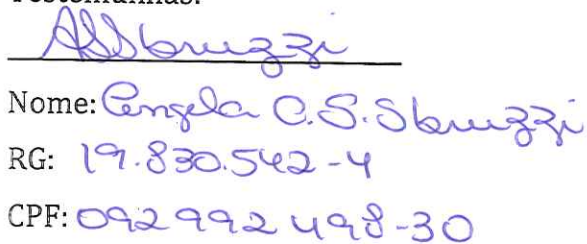 Testemunhas:
ASSbruzzi
Nome: Angela C.S. Sbruzzi
RG: 19.830.542-4
CPF: 092 992 498-30